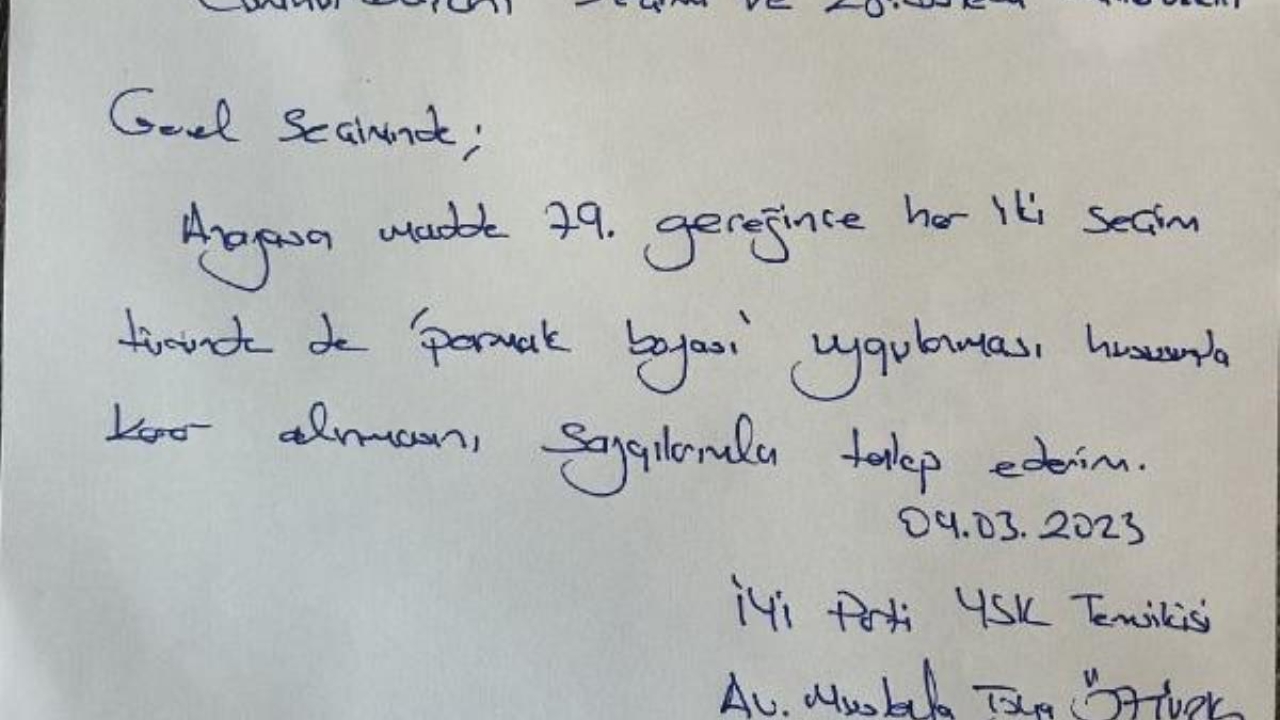 Cumhurbaşkanı Seçimi ve 28. Dönem
Genel Seçiminde;
Anayasa madde 79. gereğince her iki seçim
türünde de 'parmak boyası' uygulaması hususunda
karar alınmasını saygılarımla talep ederim.
04.03.2023
İYİ Parti YSK Temsilcisi
Av. Mustafa Tolga ÖZTÜRK